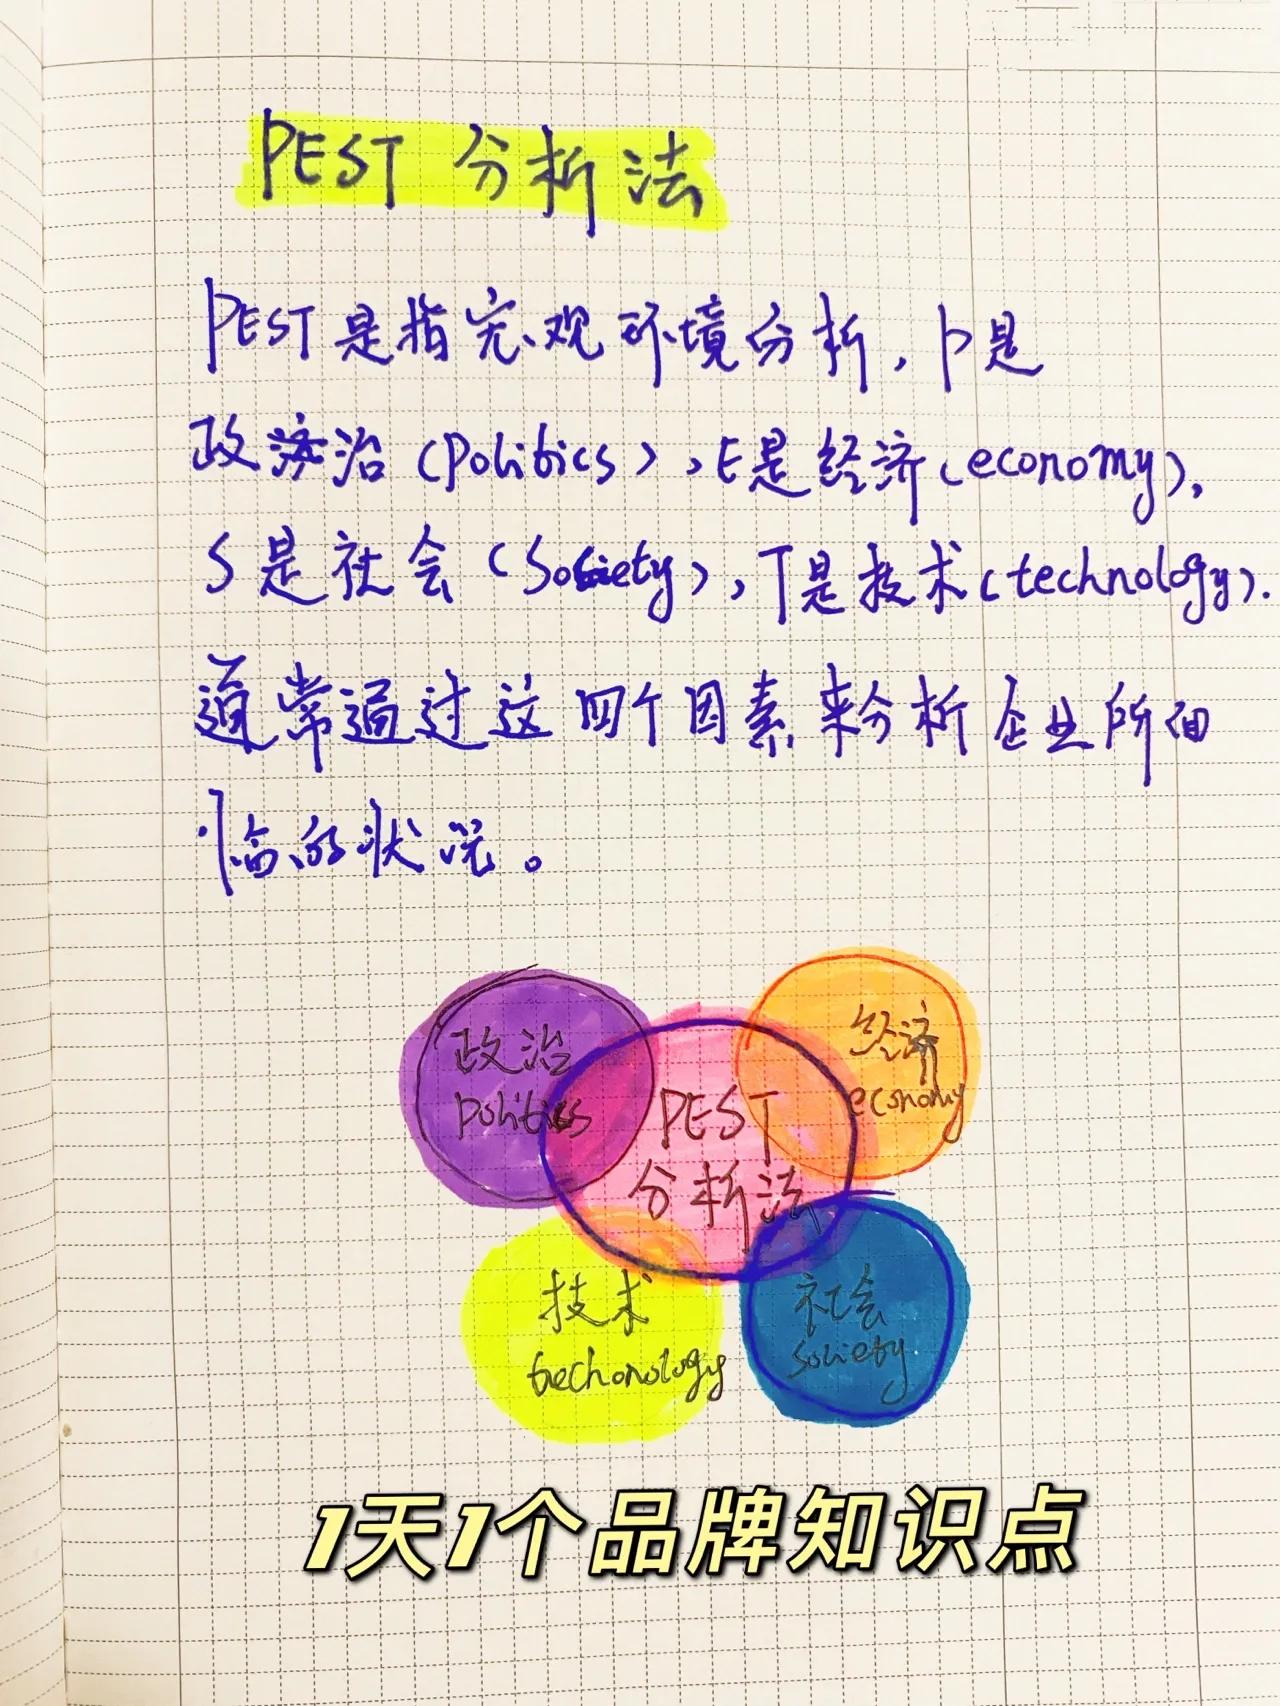 PEST 分析法
PEST是指宏观环境分析，P是
政治（Politics），E是经济（economy），
S是社会（Society），T是技术（technology）.
通常通过这四个因素来分析企业所面
临的状况。
政治
politics
经济
economy
PEST
分析法
技术
techonology
社会
society
1天1个品牌知识点